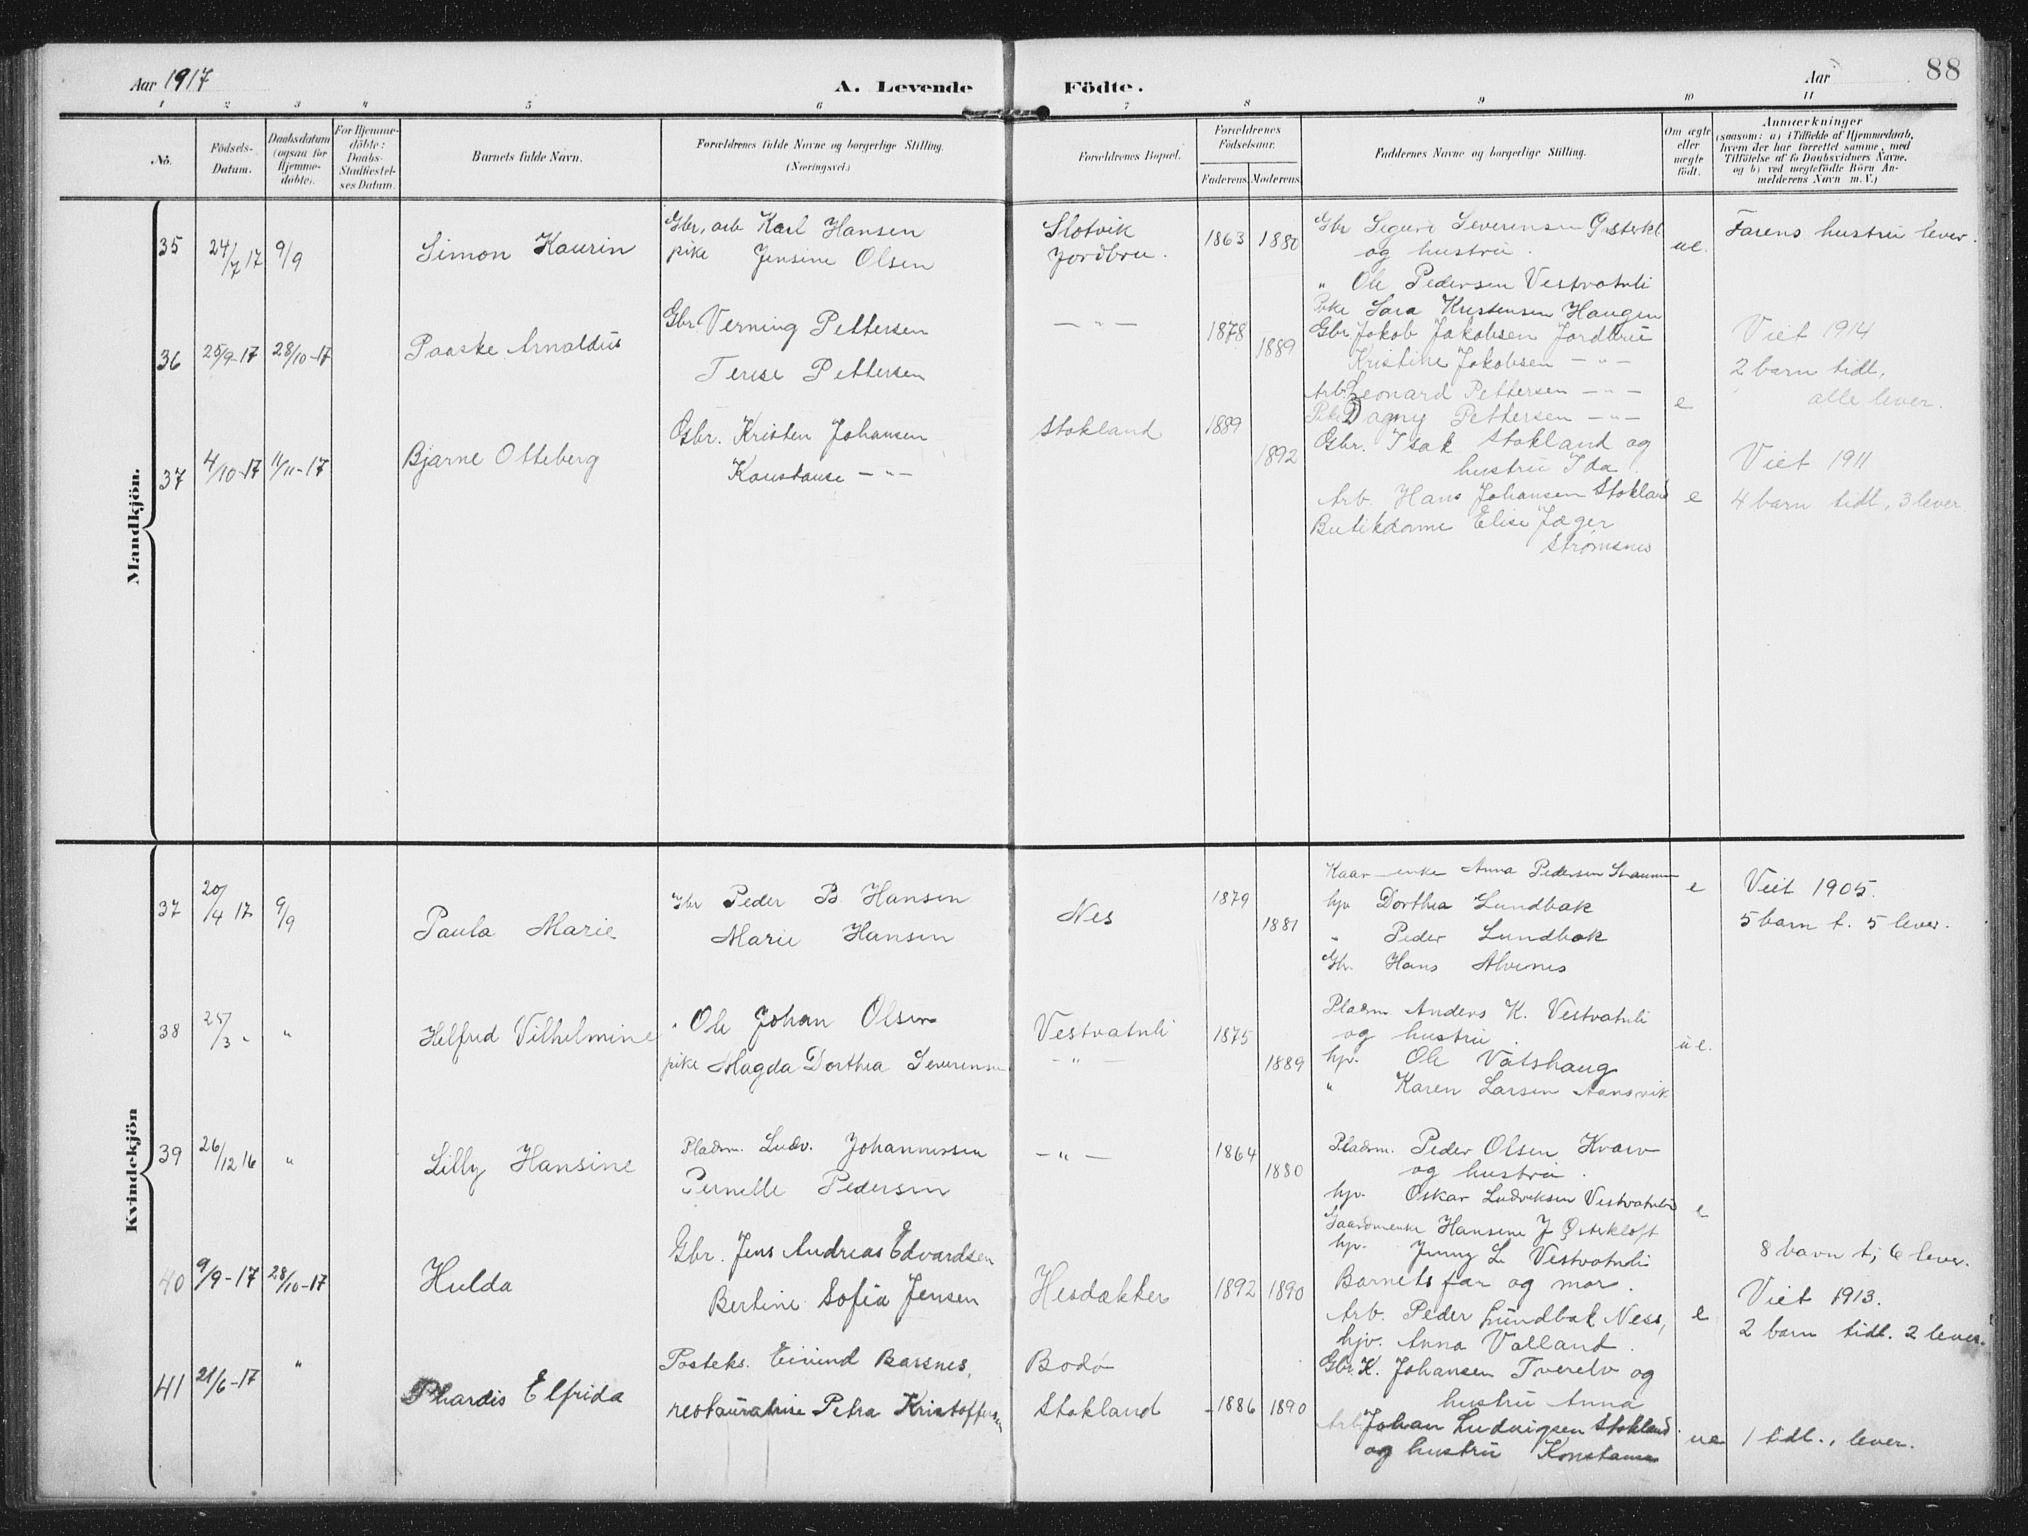 Aar 1917
A. Levende Födte.
Aar
88
1 2 3 4 5 6 7 8 9 10 11
No.
Födsels-Datum.
Daabsdatum (ogsaa for Hjemme-döbte).
For Hjemme-döbte: Daabs-Stadfæstel-ses Datum.
Barnets fulde Navn.
Forældrenes fulde Navne og borgerlige Stilling.
(Næringsvei.)
Forældrenes Bopæl.
Forældrenes Födselsaar.
Faderens Moderens
Faddernes Navne og borgerlige Stilling.
Om ægte eller uægte födt.
Anmærkninger
(saasom: a) i Tilfælde af Hjemmedaab,
hvem der har forrettet samme, med
Tilföielse af to Daabsvidners Navne,
og b) ved uægtefödte Börn An-
melderens Navn m. V.)
Mandkjön.
35 24/7 17 9/9 Simon Kaurin
Gbr, arb Karl Hansen
pike Jensine Olsen
Slotvik
Jordbru.
1863 1880
Gbr Sigurd Severensen
og hustru.
" Ole Pedersen Vestvatnli
Pike Sara Kristensen Haugen
ue.
Farens hustru lever.
36 25/9-17 28/10-17 Paaske Arnoldus
Gbr Verning Pettersen
Terese Pettersen
— " —
1878 1889
Gbr Jakob Jakobsen Jordbru
Kristine Jakobsen — " —
Arb. Leonard Pettersen — " —
Pike Dagny Pettersen — " —
e
Viet 1914
2 barn tidl.
alle lever.
37 4/10-17 11/11-17 Bjarne Otteberg
Gbr. Kristen Johansen
Konstanse — " —
Stokland
1889 1892
Gbr. Isak Stokland og
hustru Ida.
Arb. Hans Johansen Stokland
Butikdame Elise Jæger
Strømsnes
e
Viet 1911
4 barn tidl., 3 lever
Kvindekjön
37 20/4 17 9/9 Paula Marie
Gbr Peder B. Hansen
Marie Hansen
Nes
1879 1881
Kaar enke Anna Pedersen
hjv Dorthea Lundbak
" Peder Lundbak
Gbr. Hans Alvenes
e
Viet 1905.
5 barn t. 5 lever.
38 25/3 " " Helfred Vilhelmine
" Ole Johan Olsen
pike Magda Dorthea Severensen
Vestvatnli
— " —
1875 1889
Pladsm Anders K. Vestvatnli
og hustru.
hjv. Ole Vatshaug
" Karen Larsen Aansvik
ue.
39 26/12 16 " Lilly Hansine
Pladsm. Ludv. Johannessen
Pernelle Pedersen
— " —
1864 1880
Pladsm. Peder Olsen Kvarv
og hustru.
hjv. Oskar Ludviksen Vestvatnli
Gaardmenke Hansine J Østekloft
hjv. Jenny L. Vestvatnli
e
8 barn t; 6 lever.
40 9/9-17 28/10-17 Hulda
Gbr. Jens Andreas Edvardsen
Bertine Sofia Jensen
Hesdakker
1892 1890
Barnets far og mor.
Arb. Peder Lundbak Ness,
hjv. Anna Valland.
Gbr. K. Johansen Tverelv og
hustru Anna
e
Viet 1913.
2 barn tidl. 2 lever.
41 21/6-17 " Elfrida
Posteks. Eivind Barsnes,
restauratrise Petra Kristoffersen
Bodø
Stokland
1886 1890
Arb. Johan Ludvigsen Stokland
og hustru Konstanse
ue
1 tidl., lever.